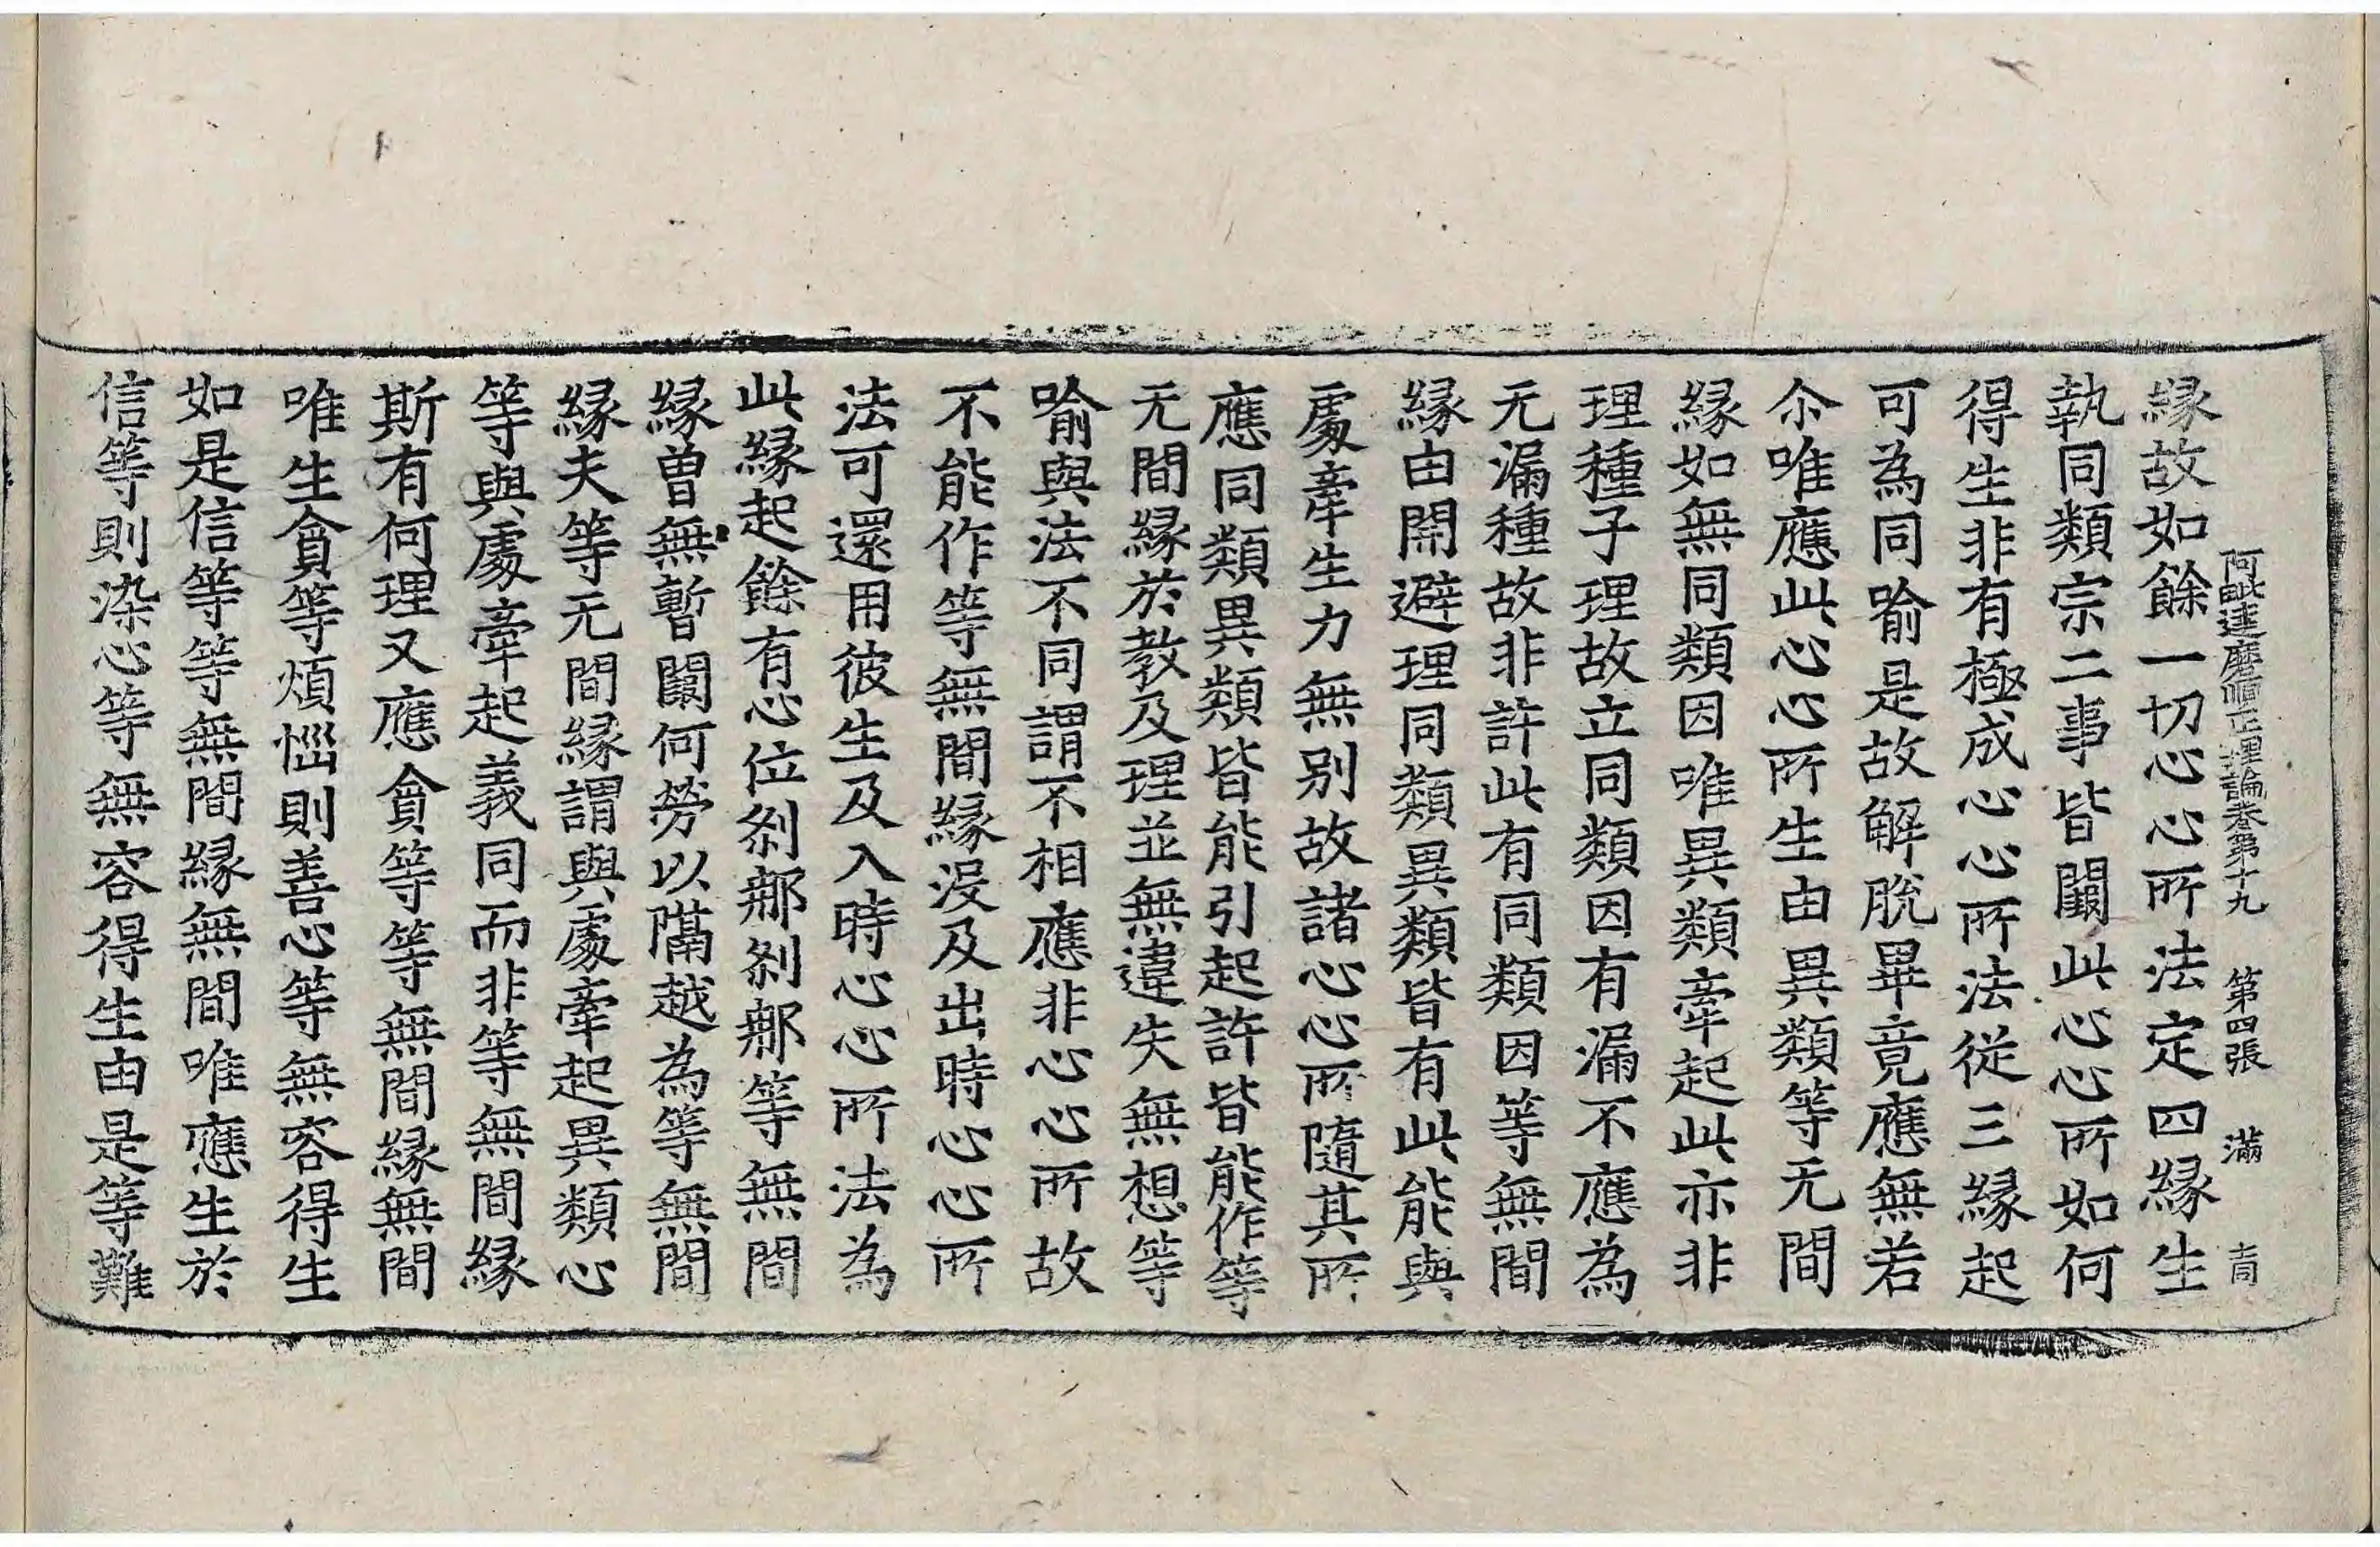 緣故如餘一切心心所法定四緣生
執同類宗二事皆闕此心心所如何
得生非有極成心心所法從三緣起
可為同喻是故解脫畢竟應無若
尒唯應此心心所生由異類等无間
緣如無同類因唯異類牽起此亦非
理種子理故立同類因有漏不應為
无漏種故非許此有同類因等無間
緣由開避理同類異類皆有此能與
處牽生力無別故諸心心所隨其所
應同類異類皆能引起許皆能作等
无間緣於教及理並無違失無想等
喻與法不同謂不相應非心心所故
不能作等無間緣沒及出時心心所
法可還用彼生及入時心心所法為
此緣起餘有心位剎那剎那等無間
緣曾無暫闕何勞以隔越為等無間
緣夫等无間緣謂與處牽起異類心
等與處牽起義同而非等無間緣
斯有何理又應貪等等無間緣無間
唯生貪等煩惱則善心等無容得生
如是信等等無間緣無間唯應生於
信等則染心等無容得生由是等難
阿毗達磨順正理論卷第十九 第四張 滿